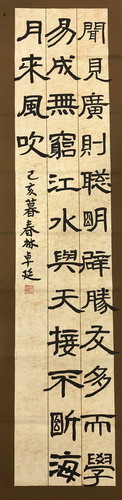 聞見廣則聰明辟勝友多而學
易成無窮江水與天接不斷海
月來風吹
乙亥暮春林卓廷